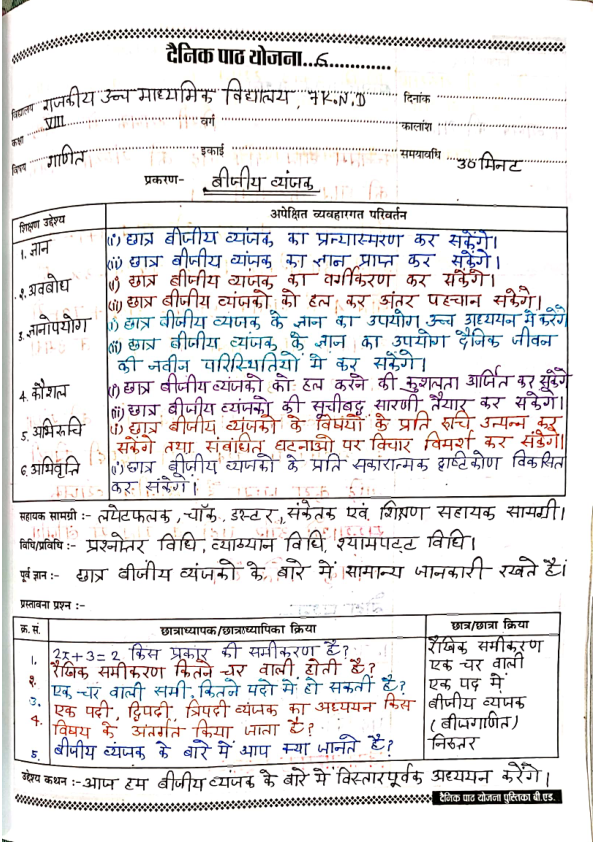 दैनिक पाठ योजना...6............
विद्यालय राजकीय उच्च माध्यमिक विद्यालय, 7K.N.D दिनांक
कक्षा VIII वर्ग कालांश
विषय गणित इकाई समयावधि 30 मिनट
प्रकरण- बीजीय व्यंजक
शिक्षण उद्देश्य अपेक्षित व्यवहारगत परिवर्तन
1. ज्ञान (i) छात्र बीजीय व्यंजक का प्रत्यास्मरण कर सकेंगे।
(ii) छात्र बीजीय व्यंजक का ज्ञान प्राप्त कर सकेंगे।
2. अवबोध (i) छात्र बीजीय व्यंजक का वर्गीकरण कर सकेंगे।
(ii) छात्र बीजीय व्यंजको को हल कर अंतर पहचान सकेंगे।
3. ज्ञानोपयोग (i) छात्र बीजीय व्यंजक के ज्ञान का उपयोग उच्च अध्ययन में करेंगे
(ii) छात्र बीजीय व्यंजक के ज्ञान का उपयोग दैनिक जीवन
की नवीन परिस्थितियों में कर सकेंगे।
4. कौशल (i) छात्र बीजीय व्यंजको को हल करने की कुशलता अर्जित कर सकेंगे
(ii) छात्र बीजीय व्यंजको की सूचीबद्ध सारणी तैयार कर सकेंगे।
5. अभिरुचि (i) छात्र बीजीय व्यंजको के विषयों के प्रति रुचि उत्पन्न कर
सकेंगे तथा संबंधित घटनाओं पर विचार विमर्श कर सकेंगे।
6. अभिवृत्ति (i) छात्र बीजीय व्यंजको के प्रति सकारात्मक दृष्टिकोण विकसित
कर सकेंगे।
सहायक सामग्री :- लपेटफलक, चॉक, डस्टर, संकेतक एवं शिक्षण सहायक सामग्री।
विधि/प्रविधि :- प्रश्नोतर विधि, व्याख्यान विधि, श्यामपट्ट विधि।
पूर्व ज्ञान :- छात्र बीजीय व्यंजको के बारे में सामान्य जानकारी रखते हैं।
प्रस्तावना प्रश्न :-
क्र. सं. छात्राध्यापक/छात्राध्यापिका क्रिया छात्र/छात्रा क्रिया
1. 2x+3=2 किस प्रकार की समीकरण है? रैखिक समीकरण
2. रैखिक समीकरण कितने चर वाली होती है? एक चर वाली
3. एक चर वाली समी. कितने पदो में हो सकती है? एक पद में
4. एक पदी, द्विपदी, त्रिपदी व्यंजक का अध्ययन किस बीजीय व्यंजक
विषय के अंतर्गत किया जाता है? (बीजगणित)
5. बीजीय व्यंजक के बारे में आप क्या जानते है? निरुतर
उद्देश्य कथन :- आज हम बीजीय व्यंजक के बारे में विस्तारपूर्वक अध्ययन करेंगे।
दैनिक पाठ योजना पुस्तिका बी.एड.